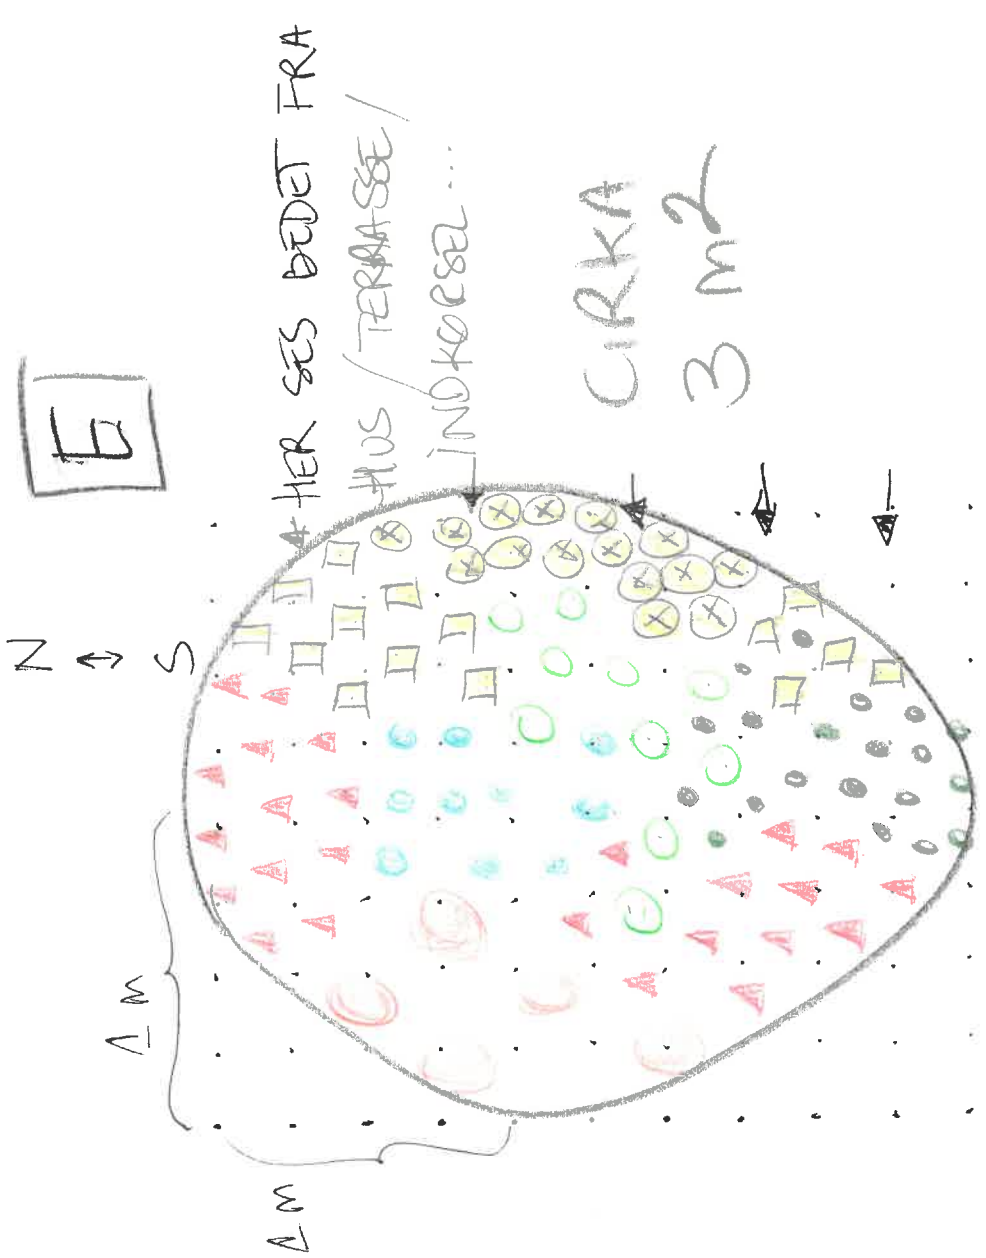 E
N ↔ S
HER SES BEDET FRA
HUS / TERRASSE /
INDKØRSEL ...
CIRKA
3 m2
1 m
1 m